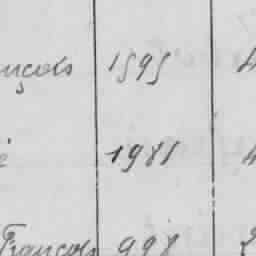 nçois 1595 4
é 1981 4
François 998 2